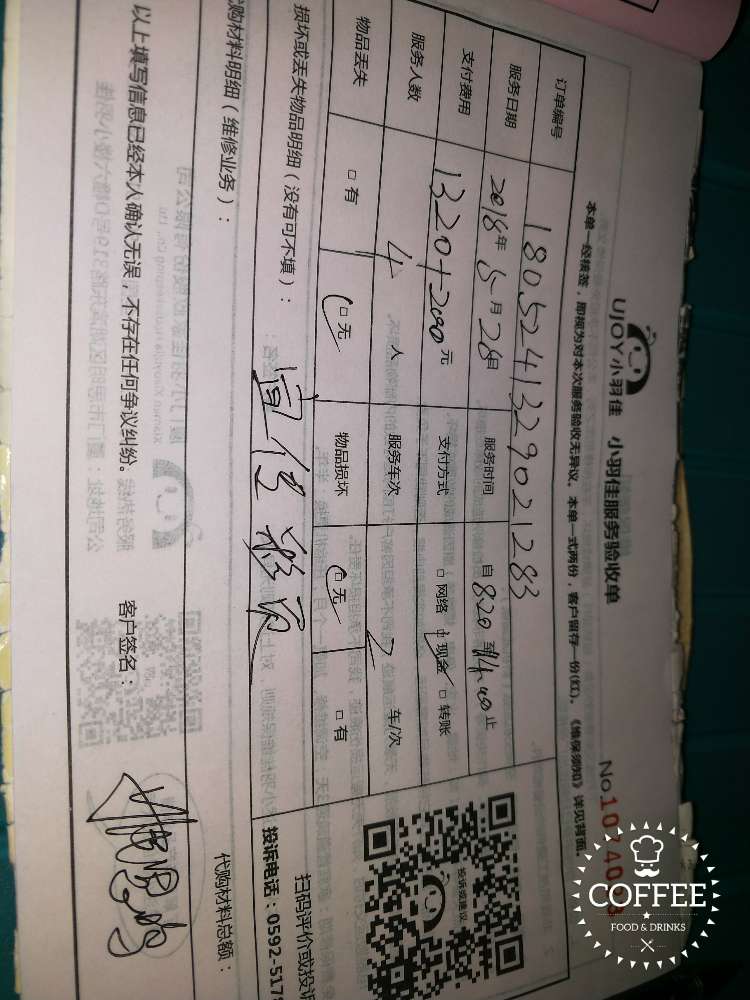 UJOY小羽佳 小羽佳服务验收单
No
本单一经接签，即视为对本次服务验收无异议。本单一式两份，客户留存一份(红)。《维保须知》详见背面。
订单编号 1805241329021283
服务日期 2018年5月28日 服务时间 自8:20到14:00止
支付费用 1320+200元 支付方式 □网络 □现金 □转账
服务人数 4人 服务车次 2 车/次
物品丢失 □有 □无 物品损坏 □无 □有
损坏或丢失物品明细（没有可不填）：
代购材料明细（维修业务）：
代购材料总额：
以上填写信息已经本人确认无误，不存在任何争议纠纷。 客户签名：
投诉或建议
扫码评价或投诉
投诉电话：0592-517
COFFEE
FOOD & DRINKS